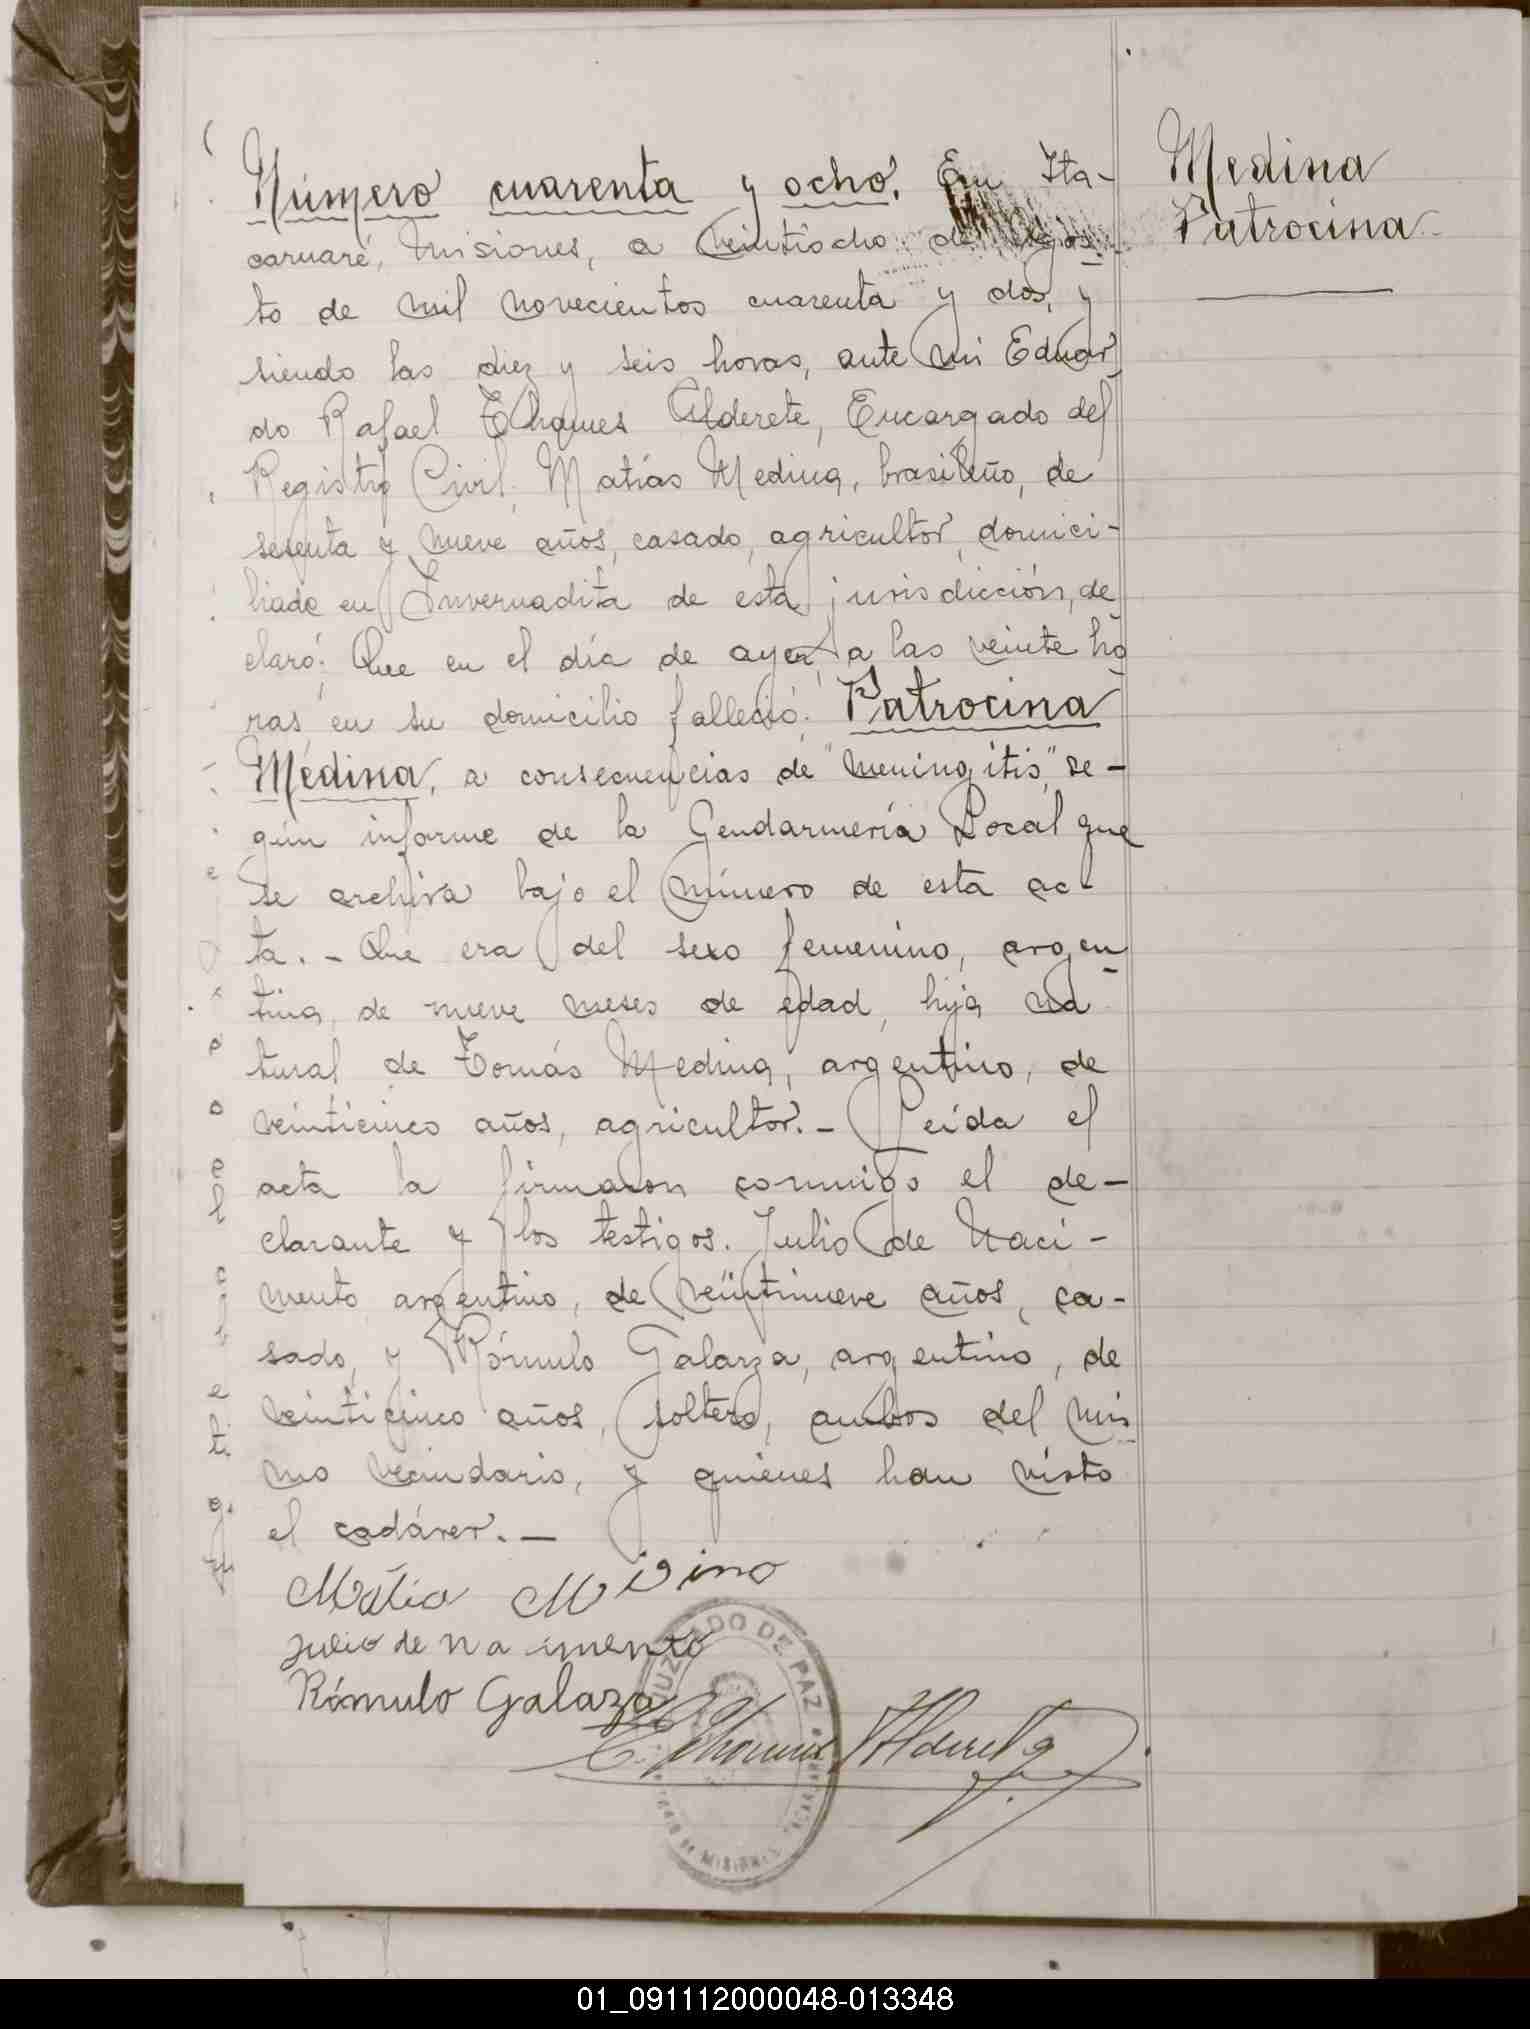 Número cuarenta y ocho. En Ita-
caruaré, Misiones, a veintiocho de agos-
to de mil novecientos cuarenta y dos, y
siendo las diez y seis horas, ante mi Eduar
do Rafael Alderete, Encargado del
Registro Civil, Matías Medina, brasileño, de
y nueve años, casado, agricultor, domici-
liado en Invernadita de esta jurisdicción, de
claró: Que en el día de ayer, a las veinte ho
ras en su domicilio falleció: Patrocina
Medina, a consecuencias de "meningitis", se-
gún informe de la Gendarmería Local que
se archiva bajo el número de esta ac-
ta.- Que era del sexo femenino, argen
tina, de nueve meses de edad, hija na
tural de Tomás Medina, argentino, de
veinticinco años, agricultor.- Leída el
acta la firmaron conmigo el de-
clarante y los testigos. Julio de Naci-
mento, argentino, de veintinueve años, ca-
sado, y Rómulo Galarza, argentino, de
veinticinco años, soltero, ambos del mis
mo vecindario, y quienes han visto
el cadáver.-
Medina
Patrocina
Julio de
Rómulo Galarza
JUZGADO DE PAZ
01_091112000048-013348